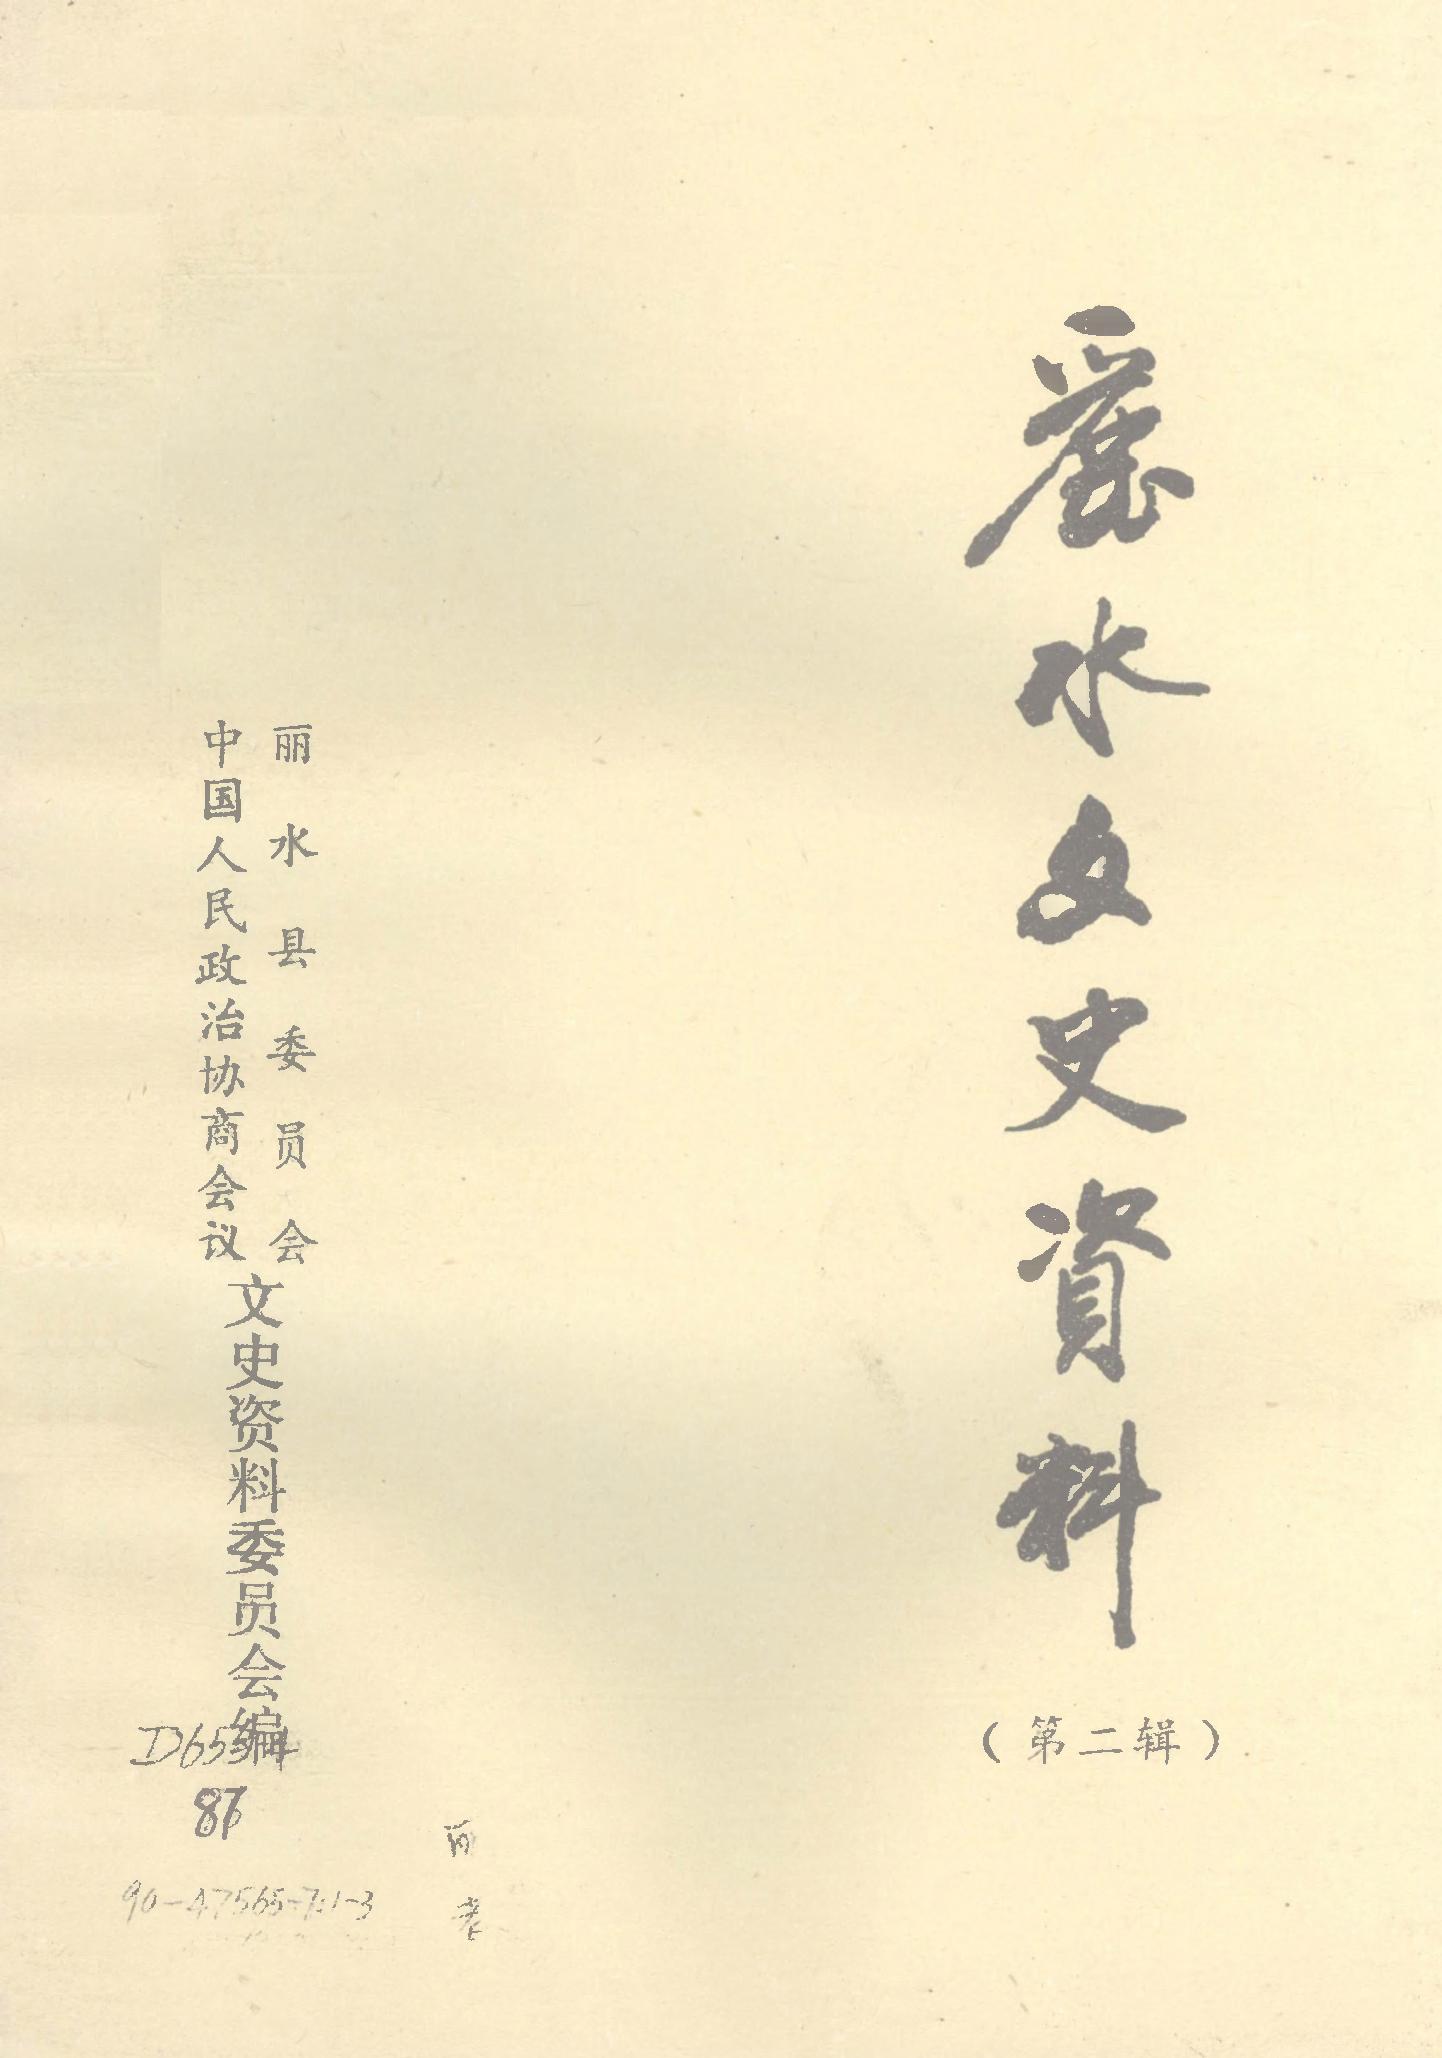 麗水文史資料
（第二辑）
丽水县委员会
中国人民政治协商会议
文史资料委员会编
87
90-47565-7:1-3